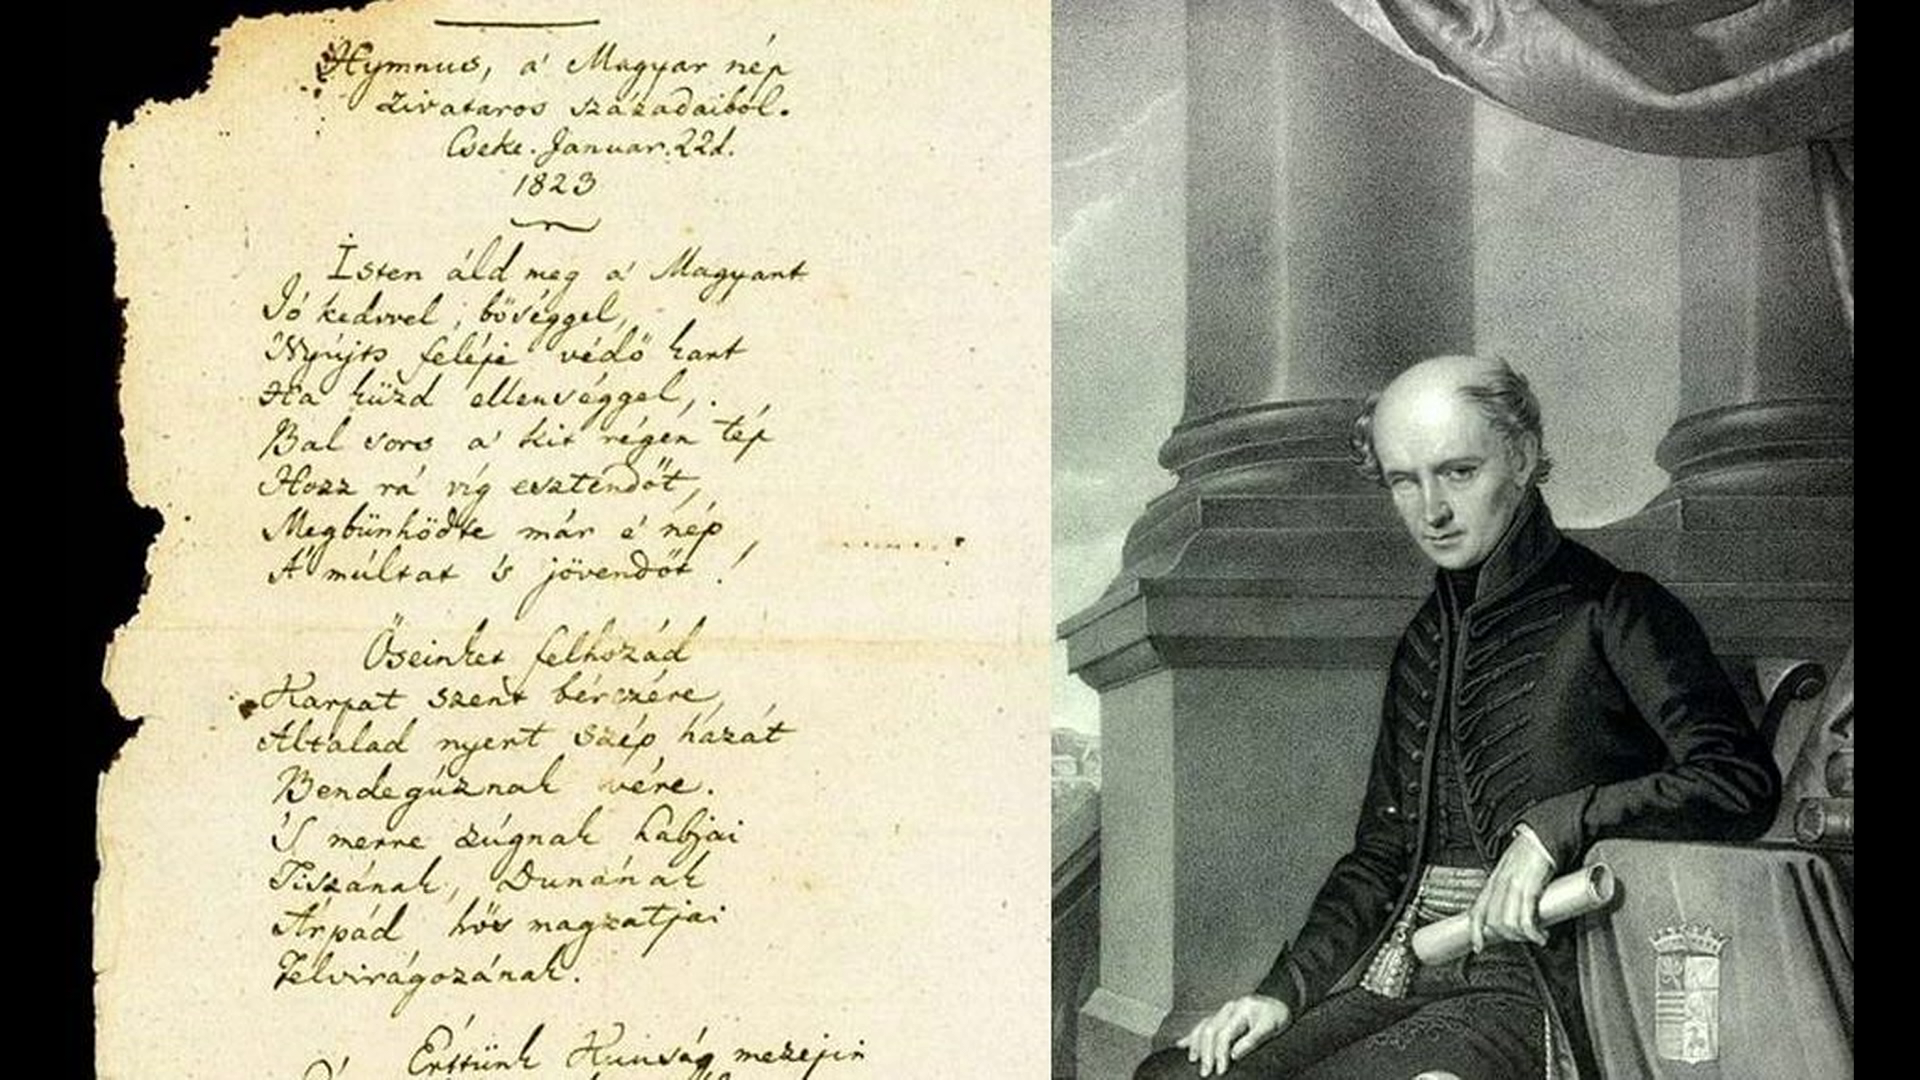 Hymnus, a' Magyar nép
zivataros századaiból.
Cseke. Januar. 22d.
1823
Isten áld meg a' Magyart
Jó kedvvel, bőséggel,
Nyújts feléje védő kart
Ha küzd ellenséggel,
Bal sors a' kit régen tép
Hozz rá víg esztendőt,
Megbünhödte már e' nép
A' múltat 's jövendőt!
Őseinket felhozád
Kárpát szent bérczére,
Általad nyert szép hazát
Bendegúznak vére.
'S merre zúgnak habjai
Tiszának, Dunának
Árpád hős magzatjai
Felvirágozának.
Értünk Kunság mezején